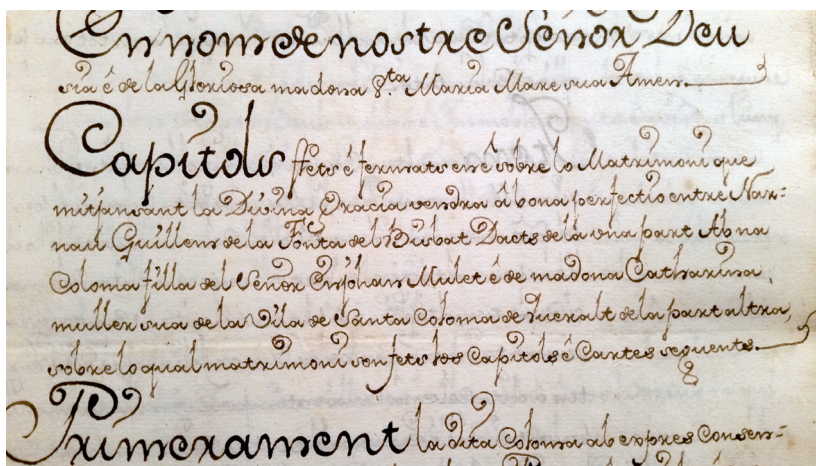 En nom de nostre Señor Deu
sia é de la Gloriosa madona S.ta Maria Mare sua Amen.
Capitols ffets é fermats en é sobre lo Matrimoni que
mitjansant la Divina Gracia vendra á bona perfectio entre Nar-
nau Guillem de la Fonta del Bisbat Dacts de la una part Ab na
Coloma filla del Señor Enjoham Mulet é de madona Catharina
muller sua de la Vila de Santa Coloma de Queralt de la part altra,
sobre lo qual matrimoni son fets los Capitols é Cartes seguents.
Primerament la dita Coloma ab expres consen-